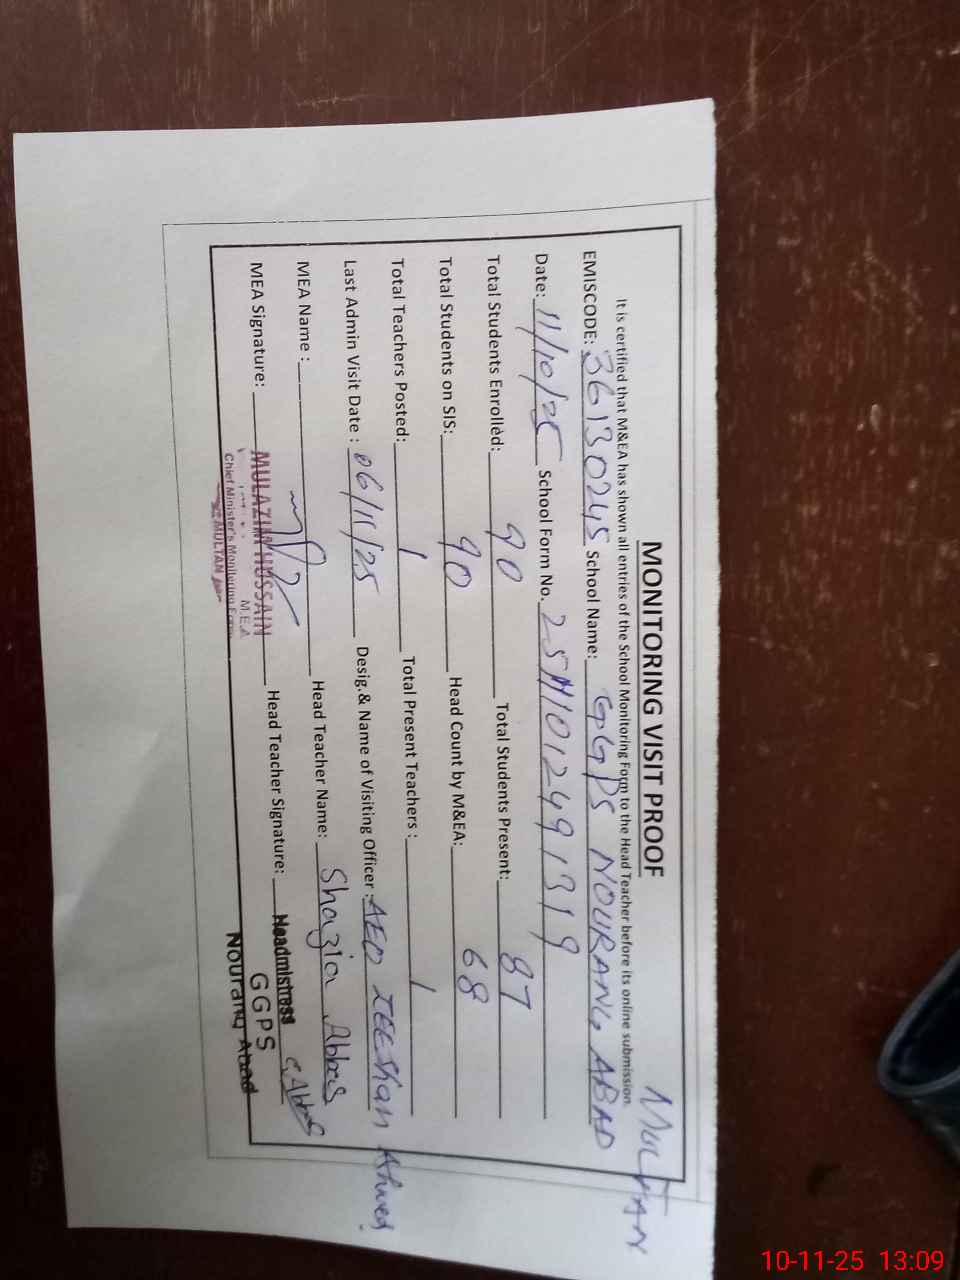 MULTAN
MONITORING VISIT PROOF
It is certified that M&EA has shown all entries of the School Monitoring Form to the Head Teacher before its online submission.
EMISCODE: 36130245 School Name: GGPS NOURANG ABAD
Date: 11/10/25 School Form No. 25M1012491319
Total Students Enrolled: 90 Total Students Present: 87
Total Students on SIS: 90 Head Count by M&EA: 68
Total Teachers Posted: 1 Total Present Teachers : 1
Last Admin Visit Date : 06/11/25 Desig.& Name of Visiting Officer : AEO ZEEShan Ahmed
MEA Name : Head Teacher Name: Shazia Abbas
MEA Signature: Head Teacher Signature: S.Abbas
MULAZIM HUSSAIN
M.E.A
Chief Minister's Monitoring Force
MULTAN
Headmistress
GGPS
Nourang Abad
10-11-25 13:09